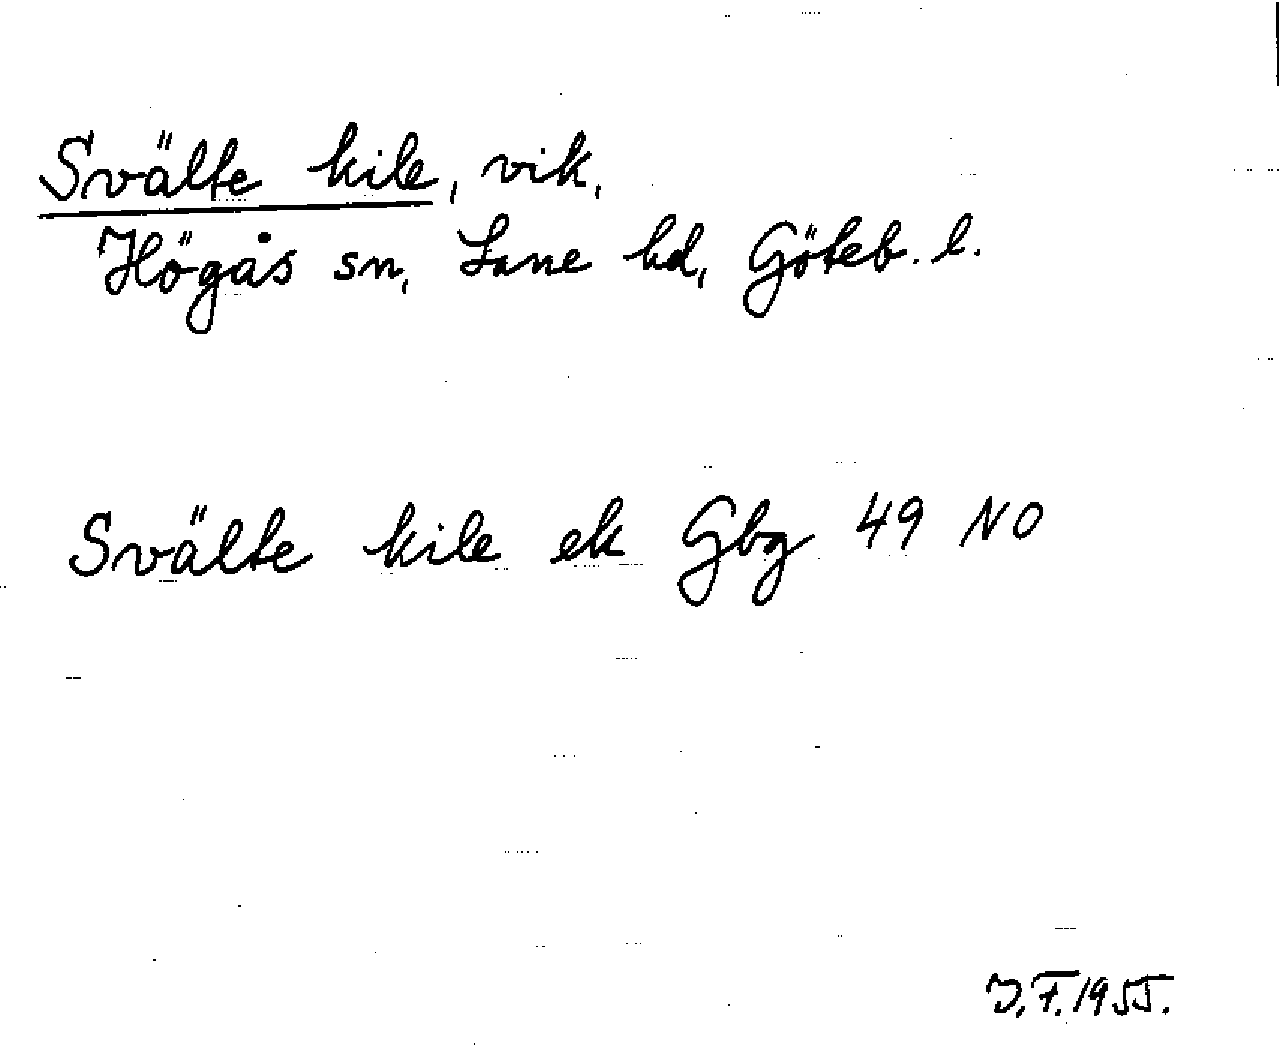 Svälte kile, vik,
Högås sn, Lane hd, Göteb. l.
Svälte kile ek Gbg 49 NO
J.F. 1955.